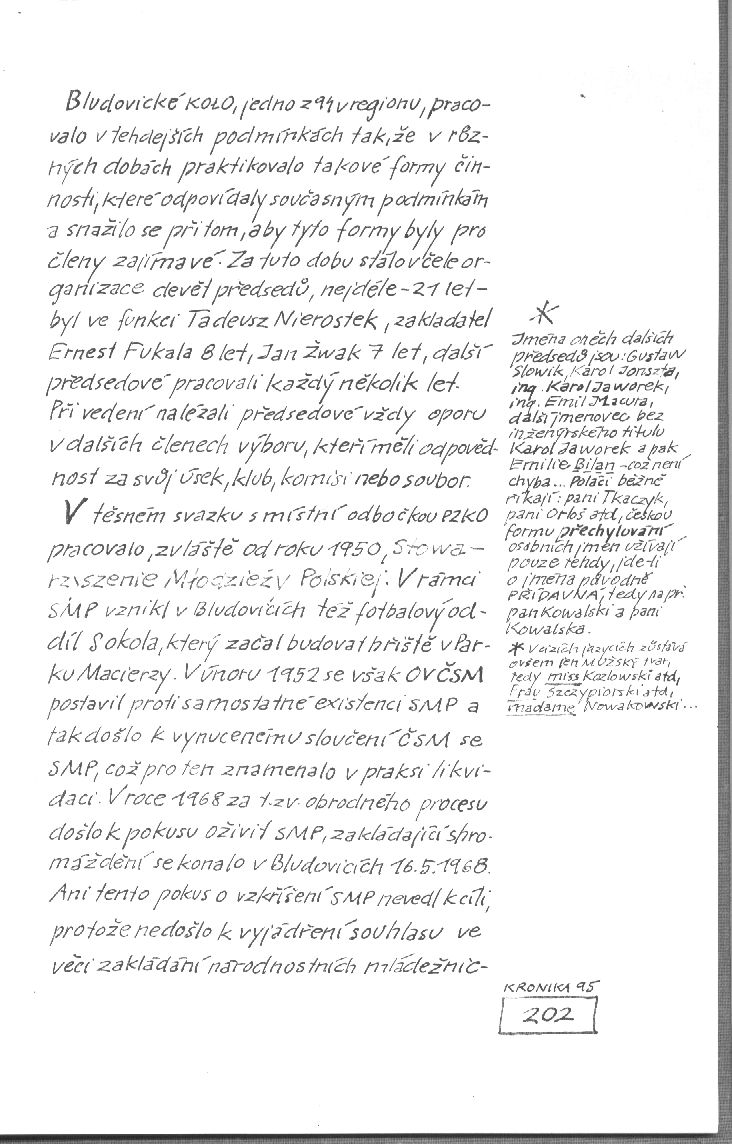 Bludovické KOŁO, jedno z 94 v regionu, praco-
valo v tehdejších podmínkách tak, že v růz-
ných dobách praktikovalo takové formy čin-
nosti, které odpovídaly současným podmínkám
a snažilo se při tom, aby tyto formy byly pro
členy zajímavé. Za tuto dobu stálo v čele or-
ganizace devět předsedů, nejdéle - 21 let -
byl ve funkci Tadeusz Nierostek, zakladatel
Ernest Fukala 8 let, Jan Żwak 7 let, další
předsedové pracovali každý několik let.
Při vedení nalézali předsedové vždy oporu
v dalších členech výboru, kteří měli odpověd-
nost za svůj úsek, klub, komisi nebo soubor.
V těsném svazku s místní odbočkou PZKO
pracovalo, zvláště od roku 1950, Stowa-
rzyszenie Młodzieży Polskiej. V rámci
SMP vznikl v Bludovicích též fotbalový od-
díl Sokola, který začal budovat hřiště v Par-
ku Macierzy. V únoru 1952 se však OV ČSM
postavil proti samostatné existenci SMP a
tak došlo k vynucenému sloučení ČSM se
SMP, což pro ten znamenalo v praksi likvi-
daci. V roce 1968 za t.zv. obrodného procesu
došlo k pokusu oživit SMP, zakládající shro-
máždění se konalo v Bludovicích 16.5.1968.
Ani tento pokus o vzkříšení SMP nevedl k cíli,
protože nedošlo k vyjádření souhlasu ve
věci zakládání národnostních mládežnic-
*
Jména oněch dalších
předsedů jsou: Gustaw
Słowik, Karol Jonszta,
ing. Karol Jaworek,
ing. Emil Macura,
další jmenovec bez
inženýrského titulu
Karol Jaworek a pak
Emilie Bilan - což není
chyba... Poláci běžně
říkají: pani Tkaczyk,
pani Orłoś atd, českou
formu přechylování
osobních jmen užívají
pouze tehdy, jde-li
o jména původně
PŘÍDAVNÁ, tedy např.
pan Kowalski a pani
Kowalska.
* V cizích jazycích zůstává
ovšem jen MUŽSKÝ tvar,
tedy miss Kozlowski atd,
Frau Szczypiorski atd,
madame Nowakowski...
KRONIKA 95
202